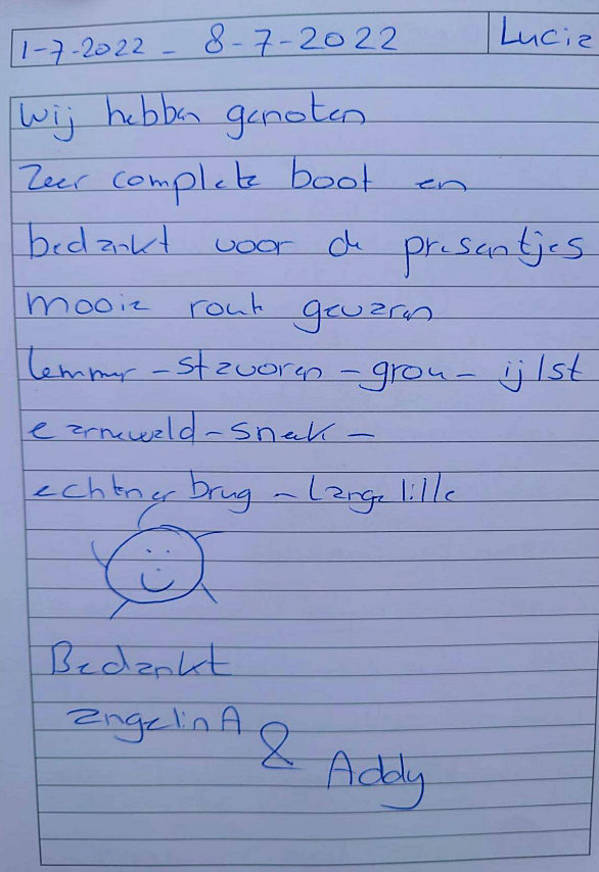 1-7-2022 - 8-7-2022 Lucie
Wij hebben genoten
Zeer complete boot en
bedankt voor de presentjes
mooie route gevaren
lemmer - stavoren - grou - ijlst
earnewald - sneek -
echtnerbrug - Langelille
Bedankt
angelinA
& Addy